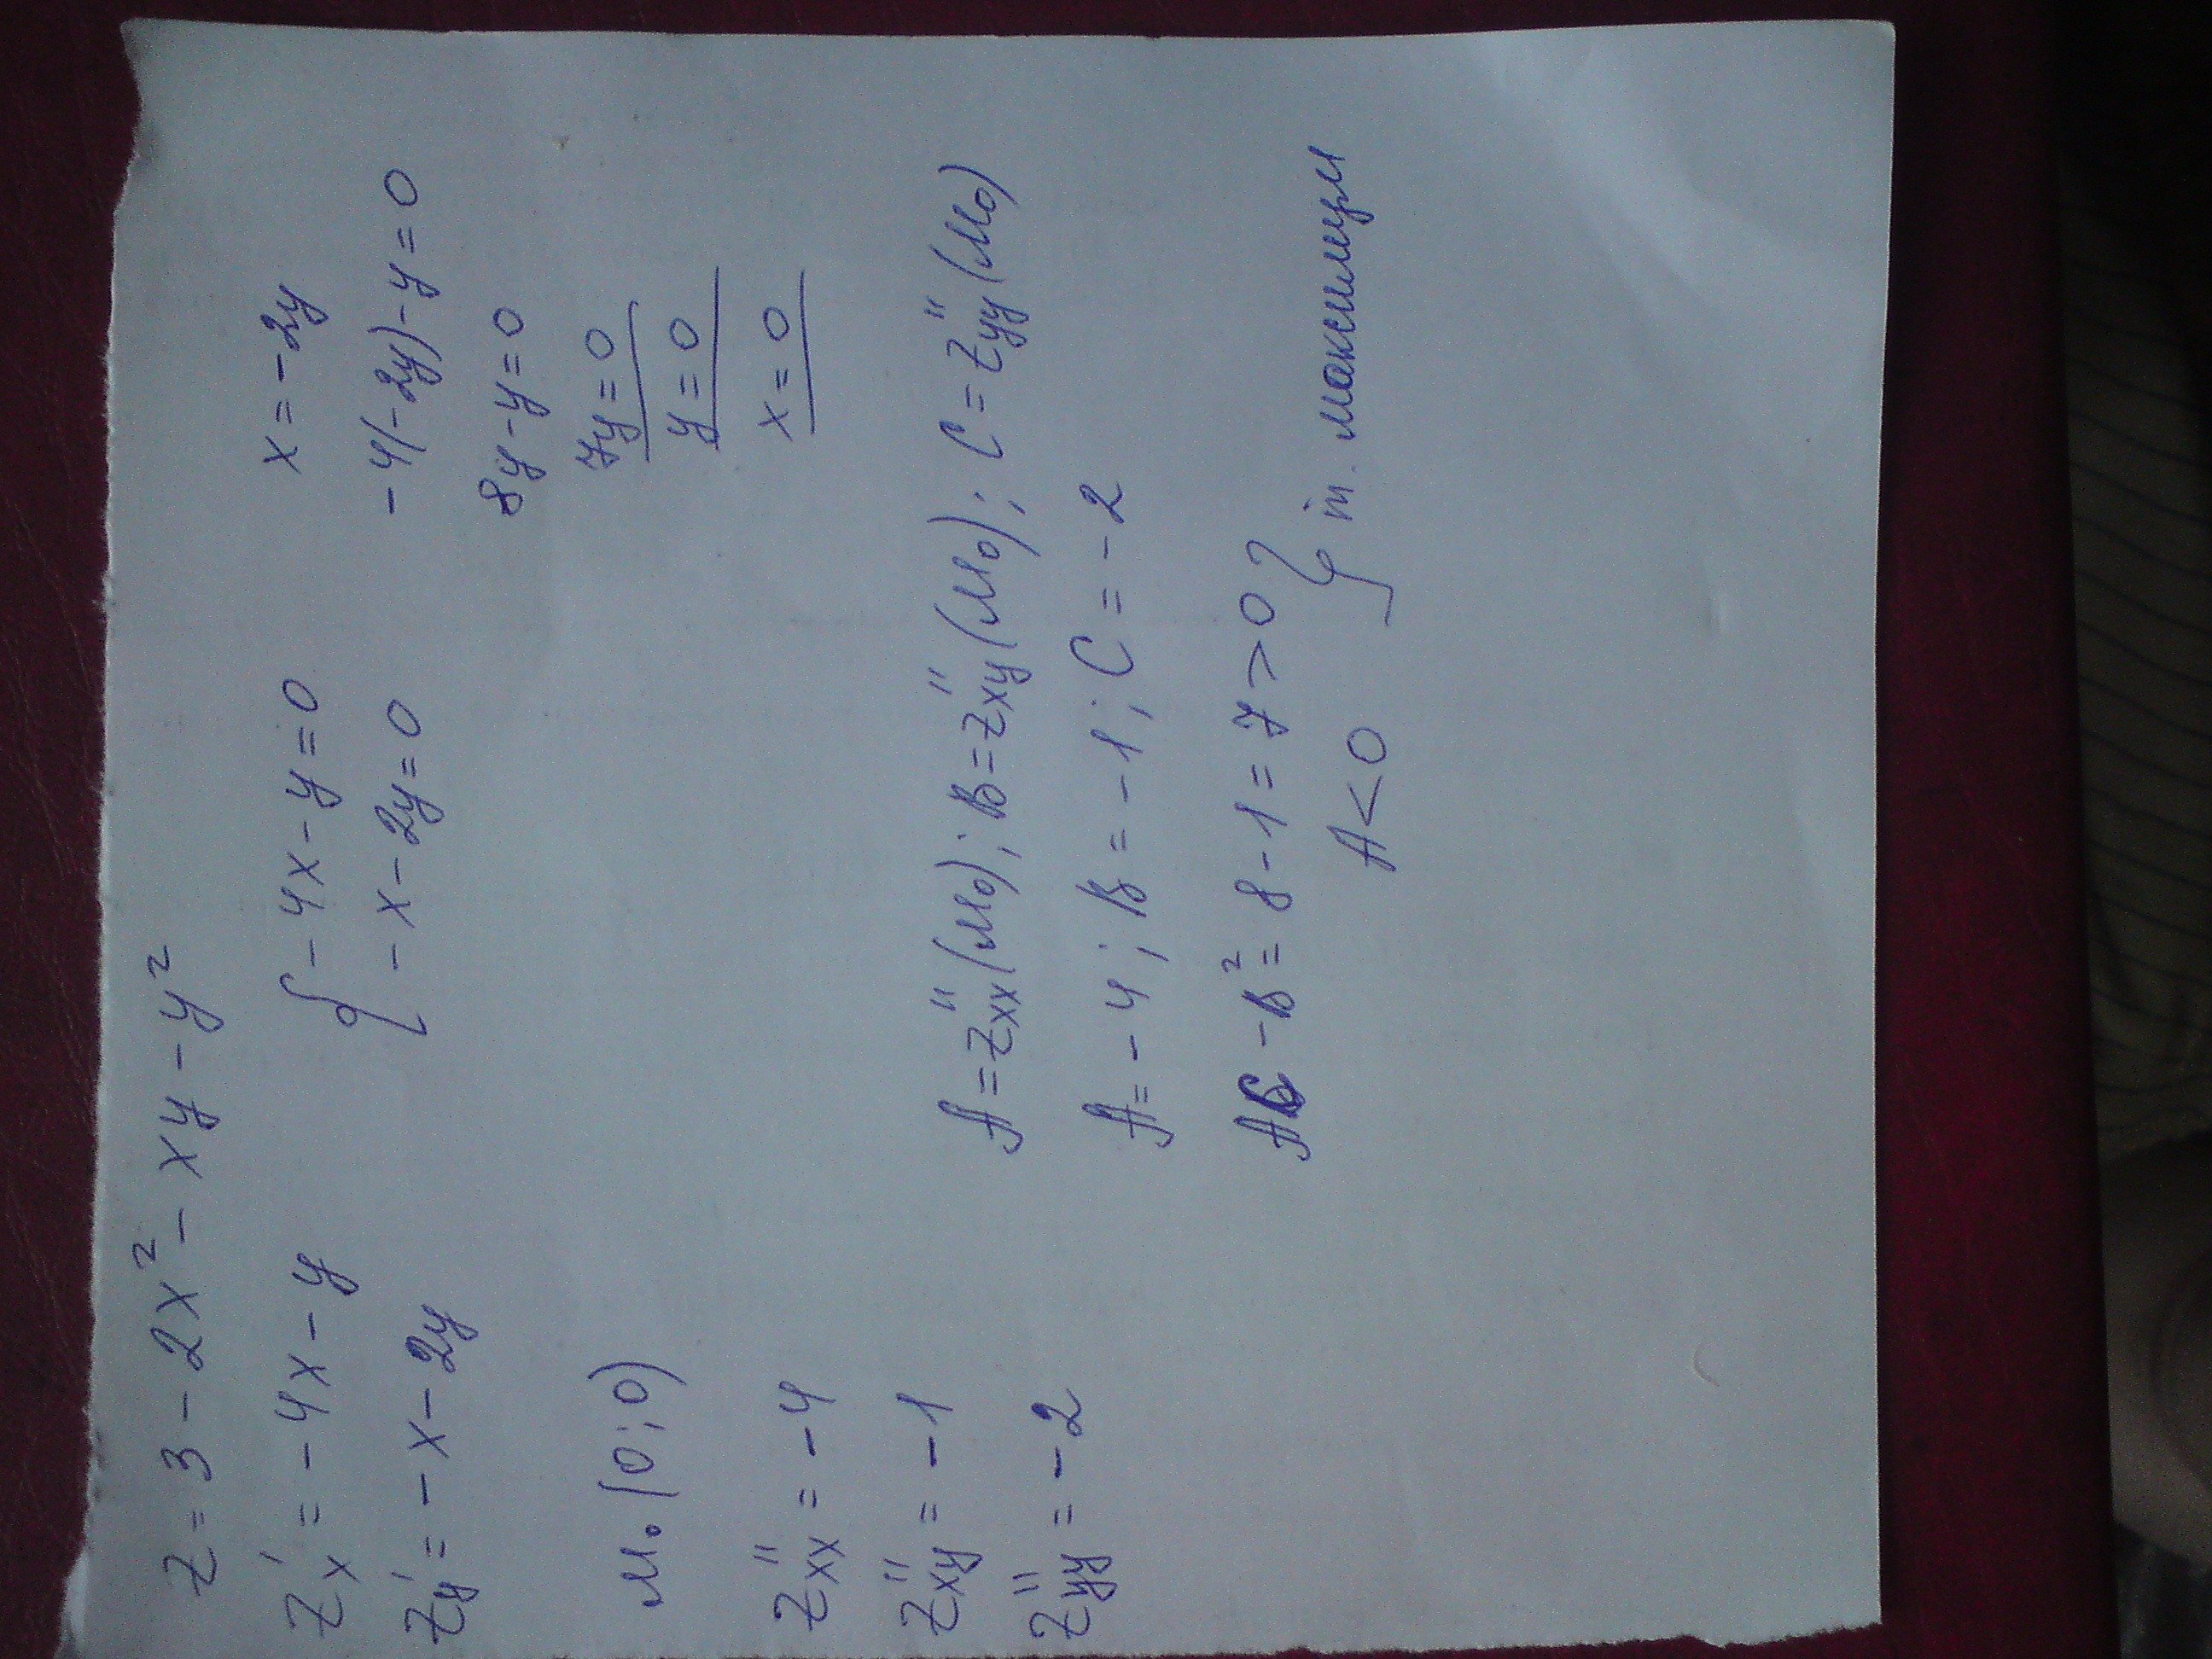 z = 3 - 2x² - xy - y²
z'x = -4x - y
z'y = -x - 2y
{ -4x - y = 0
-x - 2y = 0
x = -2y
-4(-2y) - y = 0
8y - y = 0
7y = 0
y = 0
x = 0
M₀(0;0)
z''xx = -4
z''xy = -1
z''yy = -2
A = z''xx(M₀); B = z''xy(M₀); C = z''yy(M₀)
A = -4; B = -1; C = -2
AC - B² = 8 - 1 = 7 > 0
A < 0
} т. максимум